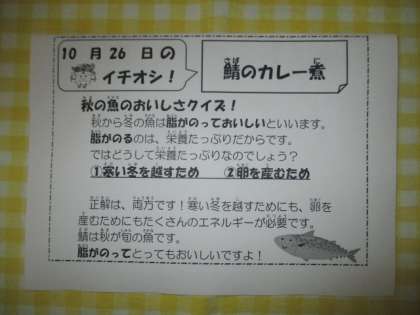 10月26日の
イチオシ！
鯖のカレー煮
秋の魚のおいしさクイズ！
秋から冬の魚は脂がのっておいしいといいます。
脂がのるのは、栄養たっぷりだからです。
ではどうして栄養たっぷりなのでしょう？
①寒い冬を越すため　②卵を産むため
正解は、両方です！寒い冬を越すためにも、卵を
産むためにもたくさんのエネルギーが必要です。
鯖は秋が旬の魚です。
脂がのってとってもおいしいですよ！